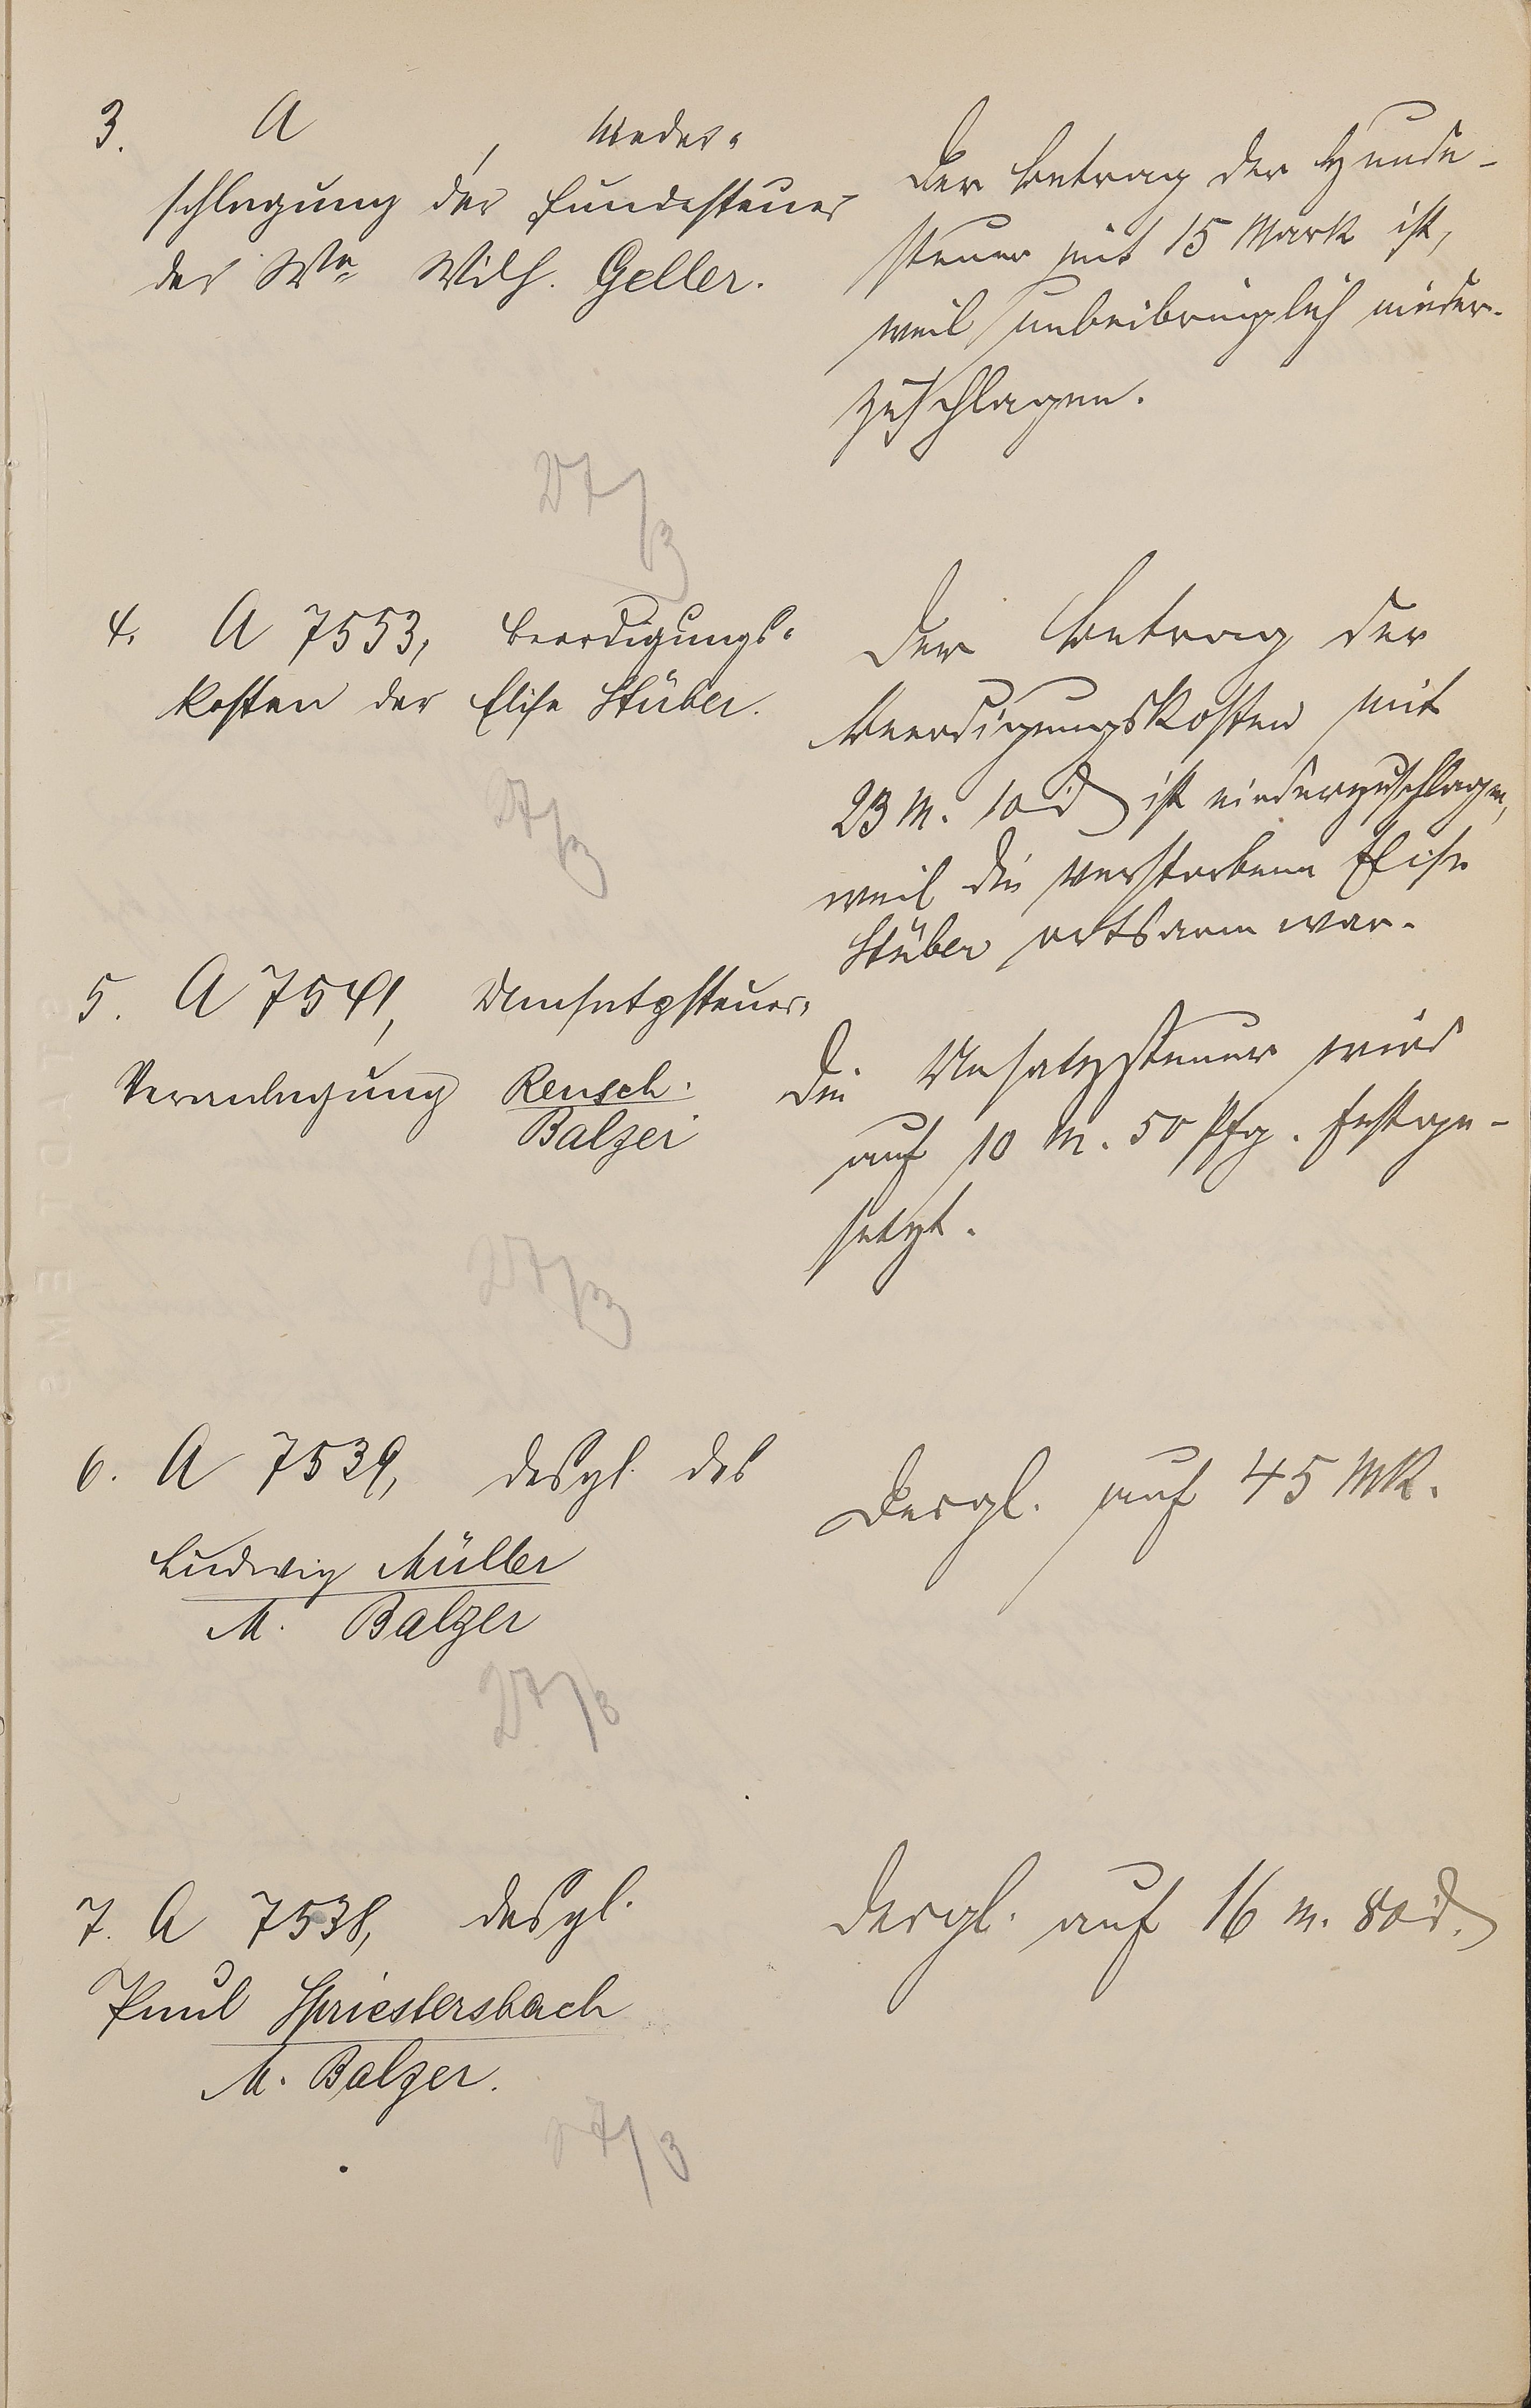 3. A , Nieder-
schlagung der Hundesteuer
der We Wilh. Geller.
Der Betrag der Hunde-
steuer mit 15 Mark ist,
weil unbeibringlich nieder-
zuschlagen.
27/3
4. A 7553, Beerdigungs-
kosten der Elise Stüber.
Der Betrag der
Beerdigungskosten mit
23 M. 10 d ist niederzuschlagen,
weil die verstorbene Elise
Stüber ortsarm war.
27/3
5. A 7541, Umsatzsteuer-
Veranlagung Rensch.
Balzer
Die Umsatzsteuer wird
auf 10 M. 50 Pfg. festge-
setzt.
27/3
6. A 7539, desgl. des
Ludwig Müller
M. Balzer
Desgl. auf 45 Mk.
27/3
7. A 7538, desgl.
Paul Spriestersbach
M. Balzer.
Desgl. auf 16 M. 80 d.
27/3